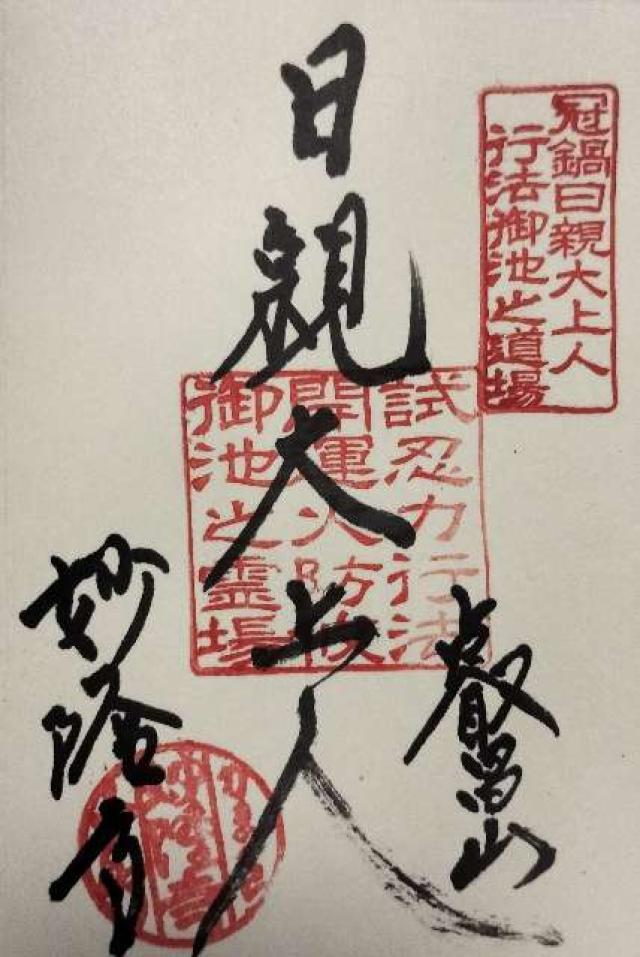 冠鍋日親大上人
行法御池之道場
日親大上人
試忍力行法
開運火防
御池之霊場
叡昌山
妙隆寺